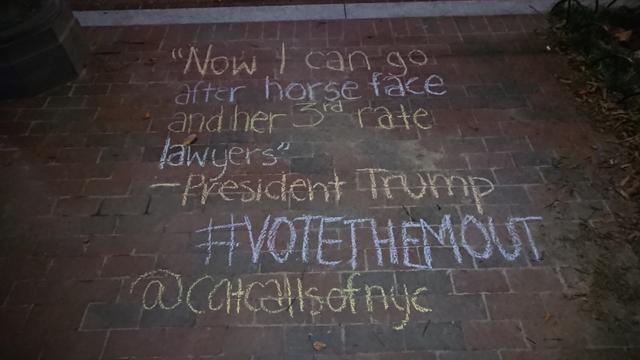 "Now I can go
after horse face
and her 3rd rate
lawyers"
-President Trump
#VOTETHEMOUT
@catcallsofnyc